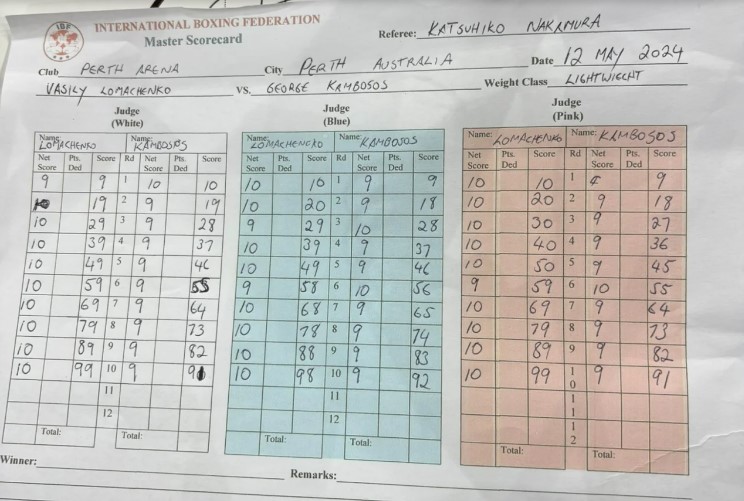 IBF
INTERNATIONAL BOXING FEDERATION
Master Scorecard
Referee: KATSUHIKO NAKAMURA
Club PERTH ARENA City PERTH AUSTRALIA Date 12 MAY 2024
VASILY LOMACHENKO VS. GEORGE KAMBOSOS Weight Class LIGHTWIECHT
Judge (White)
Name: LOMACHENKO Name: KAMBOSOS
Net Score Pts. Ded Score Rd Net Score Pts. Ded Score
9 9 1 10 10
10 19 2 9 19
10 29 3 9 28
10 39 4 9 37
10 49 5 9 46
10 59 6 9 55
10 69 7 9 64
10 79 8 9 73
10 89 9 9 82
10 99 10 9 91
11
12
Total: Total:
Judge (Blue)
Name: LOMACHENKO Name: KAMBOSOS
Net Score Pts. Ded Score Rd Net Score Pts. Ded Score
10 10 1 9 9
10 20 2 9 18
9 29 3 10 28
10 39 4 9 37
10 49 5 9 46
9 58 6 10 56
10 68 7 9 65
10 78 8 9 74
10 88 9 9 83
10 98 10 9 92
11
12
Total: Total:
Judge (Pink)
Name: LOMACHENKO Name: KAMBOSOS
Net Score Pts. Ded Score Rd Net Score Pts. Ded Score
10 10 1 9 9
10 20 2 9 18
10 30 3 9 27
10 40 4 9 36
10 50 5 9 45
9 59 6 10 55
10 69 7 9 64
10 79 8 9 73
10 89 9 9 82
10 99 10 9 91
11
12
Total: Total:
Winner:
Remarks: